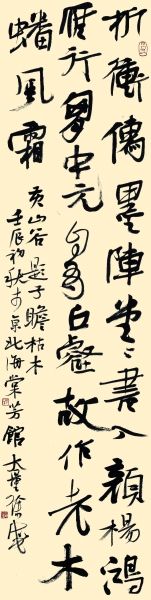 折衝儒墨陣堂〻書入顏楊鴻
雁行胷中元自有丘壑故作老木
蟠風霜
黃山谷題子瞻枯木
壬辰初秋於京北海棠芳館